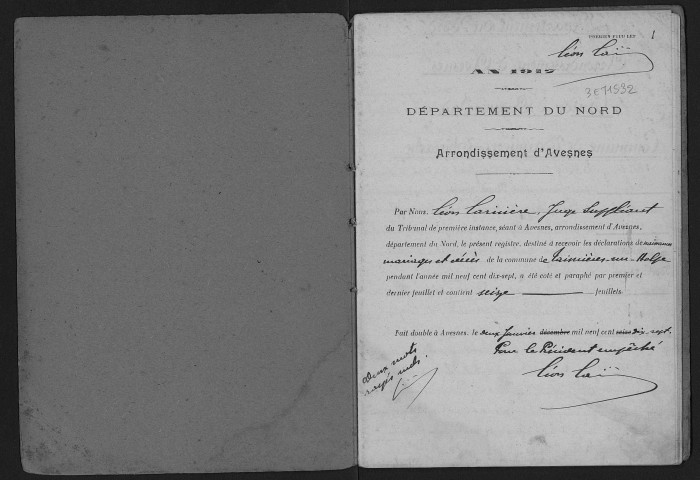 PREMIER FEUILLET 1
Léon Laï
AN 1917
3E11932
DÉPARTEMENT DU NORD
Arrondissement d'Avesnes
Par Nous, Léon Larivière, Juge Suppléant
du Tribunal de première instance, séant à Avesnes, arrondissement d'Avesnes,
département du Nord, le présent registre, destiné à recevoir les déclarations de naissances
mariages et décès de la commune de Taisnières-en-Thiérache
pendant l'année mil neuf cent dix-sept, a été coté et paraphé par premier et
dernier feuillet et contient seize feuillets.
Fait double à Avesnes, le deux Janvier décembre mil neuf cent seize dix-sept.
Pour le Président empêché
Deux mots
rayés nuls.
Léon Laï